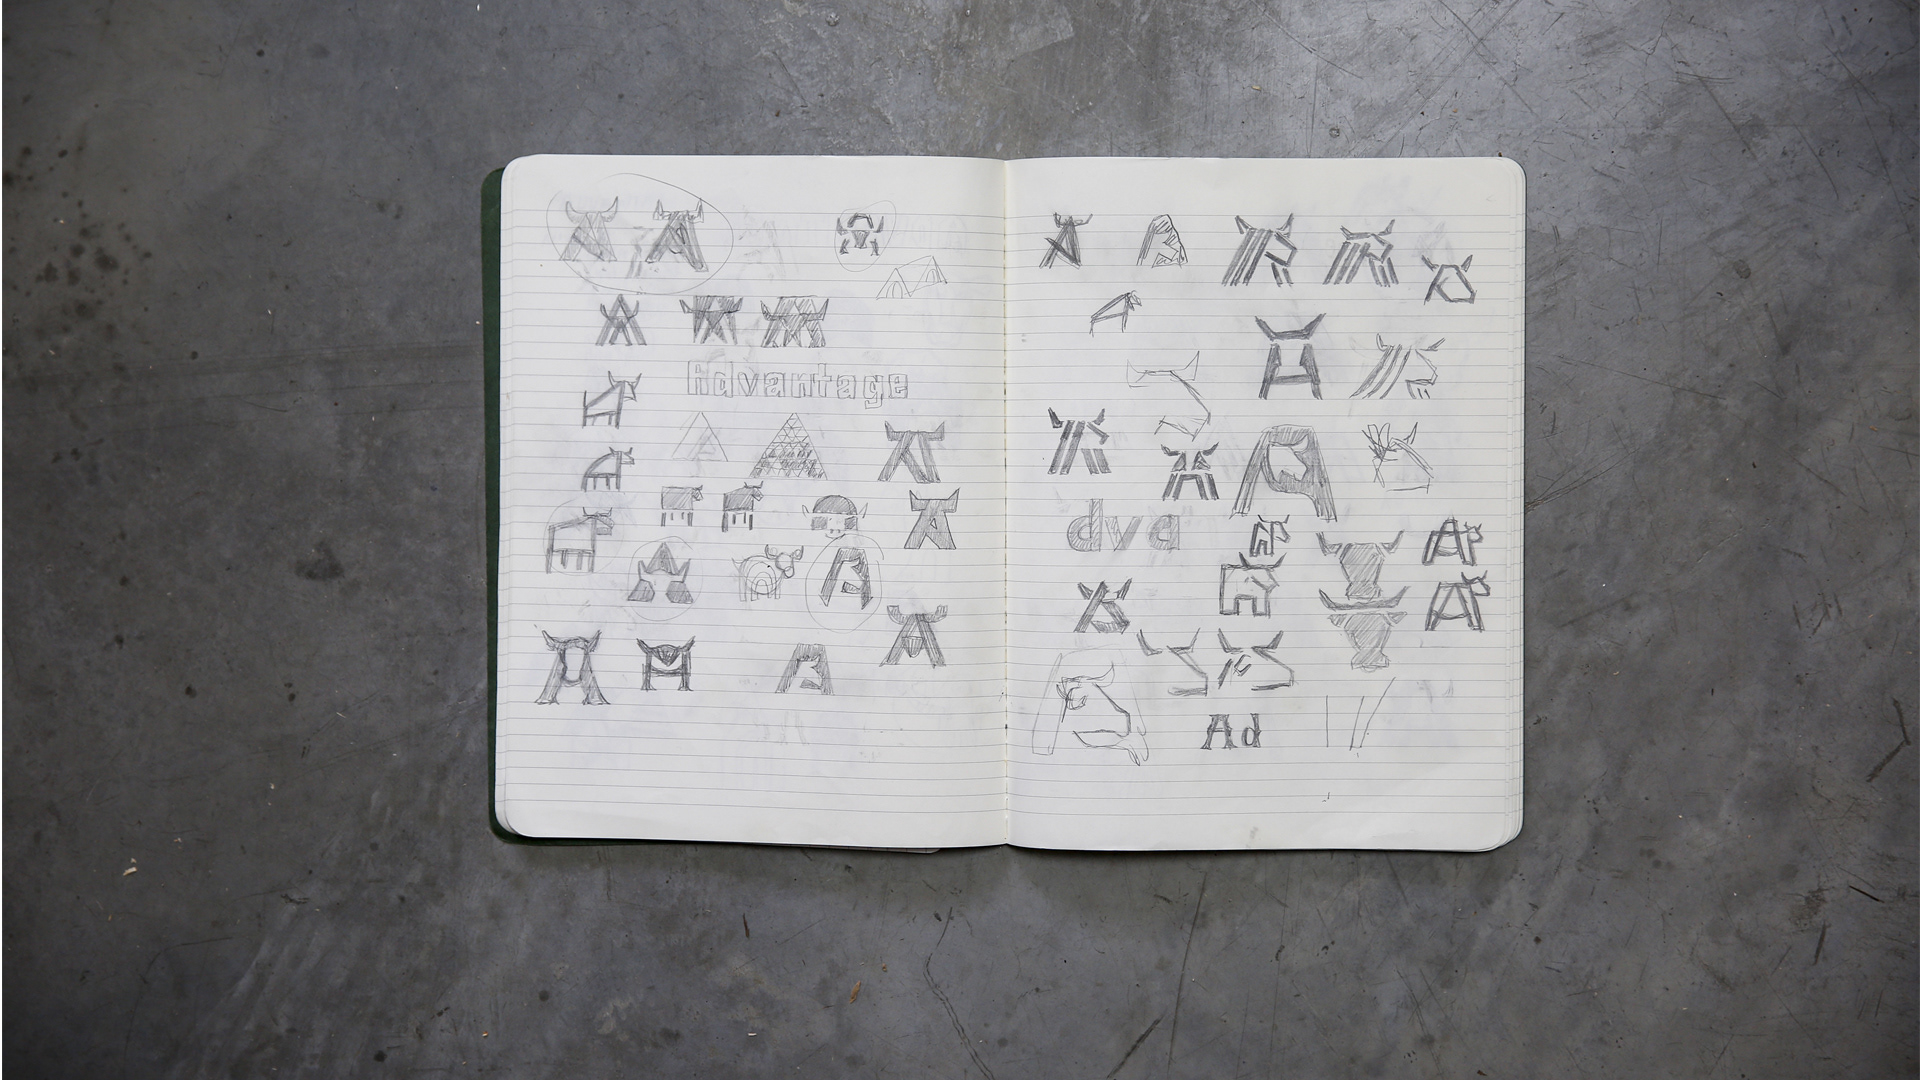 Advantage
dva
Ad